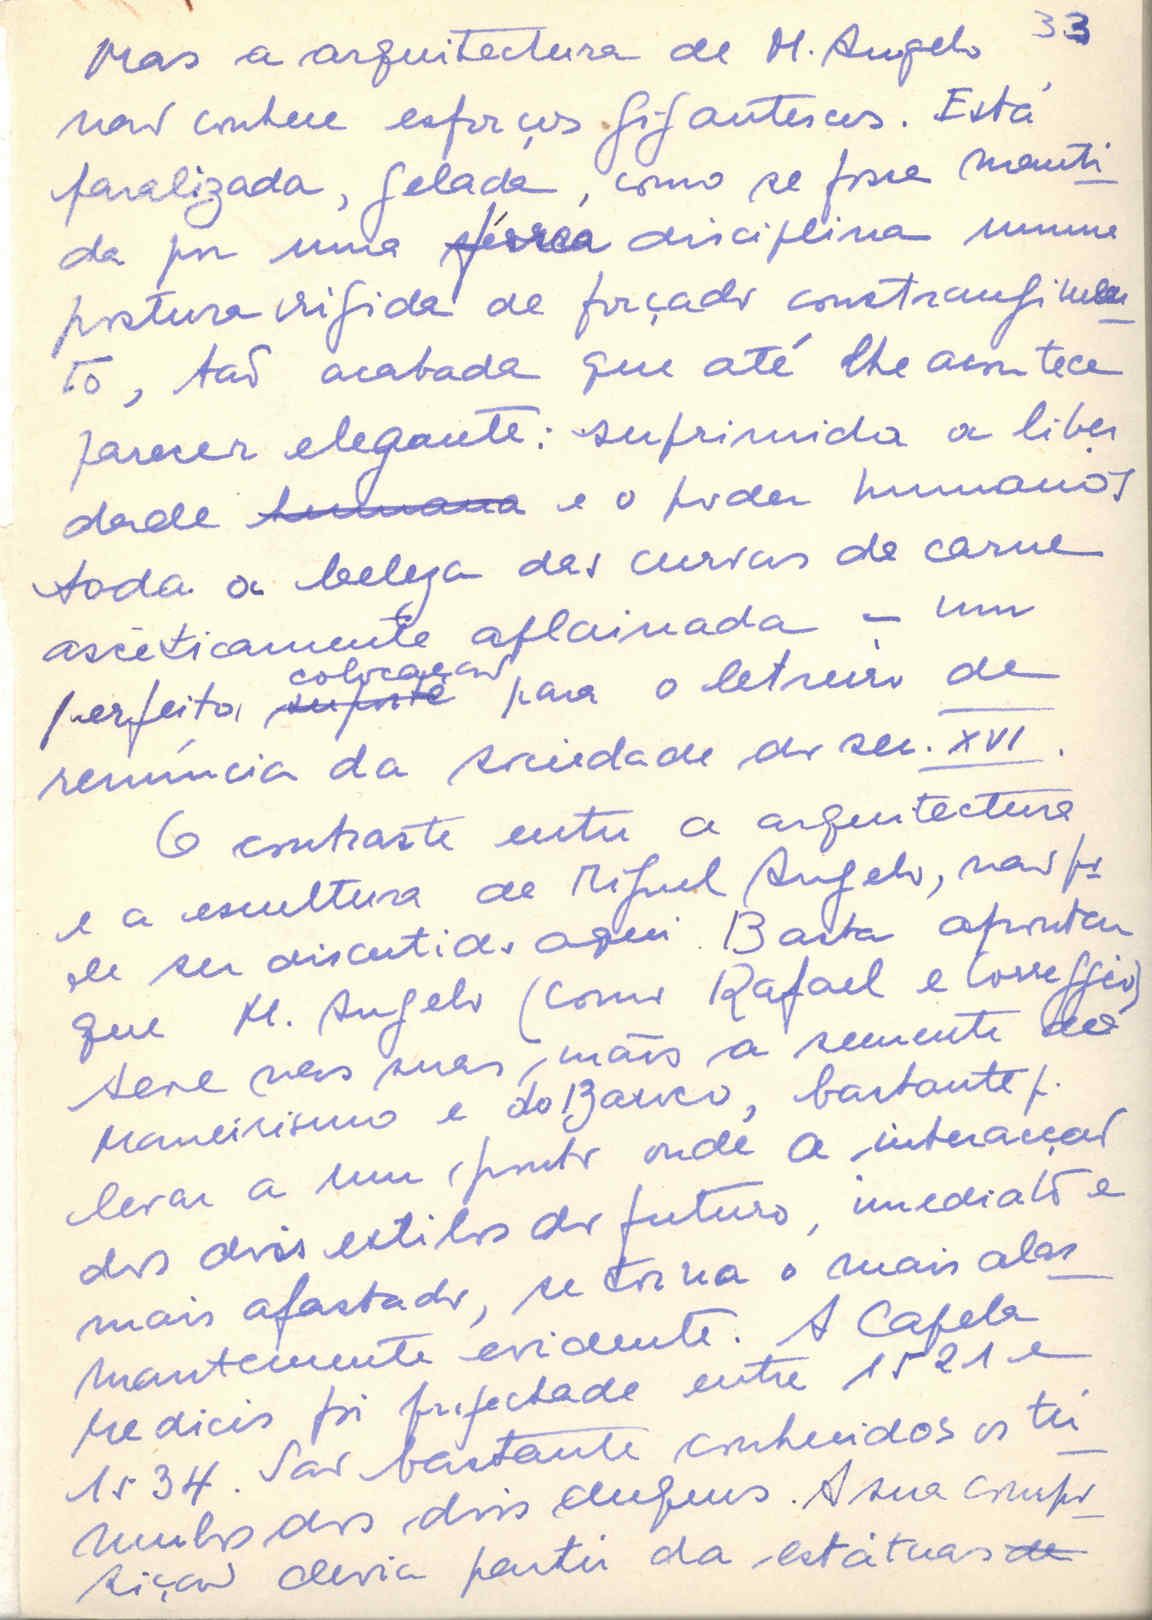 33
Mas a arquitectura de M. Angelo
não conhece esforços gigantescos. Está
paralizada, gelada, como se fosse manti
da por uma férrea disciplina numa
postura rigida de forçado constrangimen
to, tão acabada que até lhe acontece
parecer elegante: suprimida a liber
dade humana e o poder humanos
toda a beleza das curvas da carne
ascèticamente aplainada – um
colocação
perfeito suporte para o letreiro de
renúncia da sociedade do sec. XVI.
O contraste entre a arquitectura
e a escultura de Miguel Angelo, não po
de ser discutido aqui. Basta apontar
que M. Angelo (como Rafael e Correggio)
teve nas suas mãos a semente do
Maneirismo e do Barroco, bastante p.
levar a um ponto onde a interacção
dos dois estilos do futuro, imediato e
mais afastado, se torna o mais alar
mantemente evidente. A Capela
Medicis foi projectada entre 1521 e
1534. São bastante conhecidos os tú
mulos dos dois duques. A sua compo
sição devia partir da estátuas de